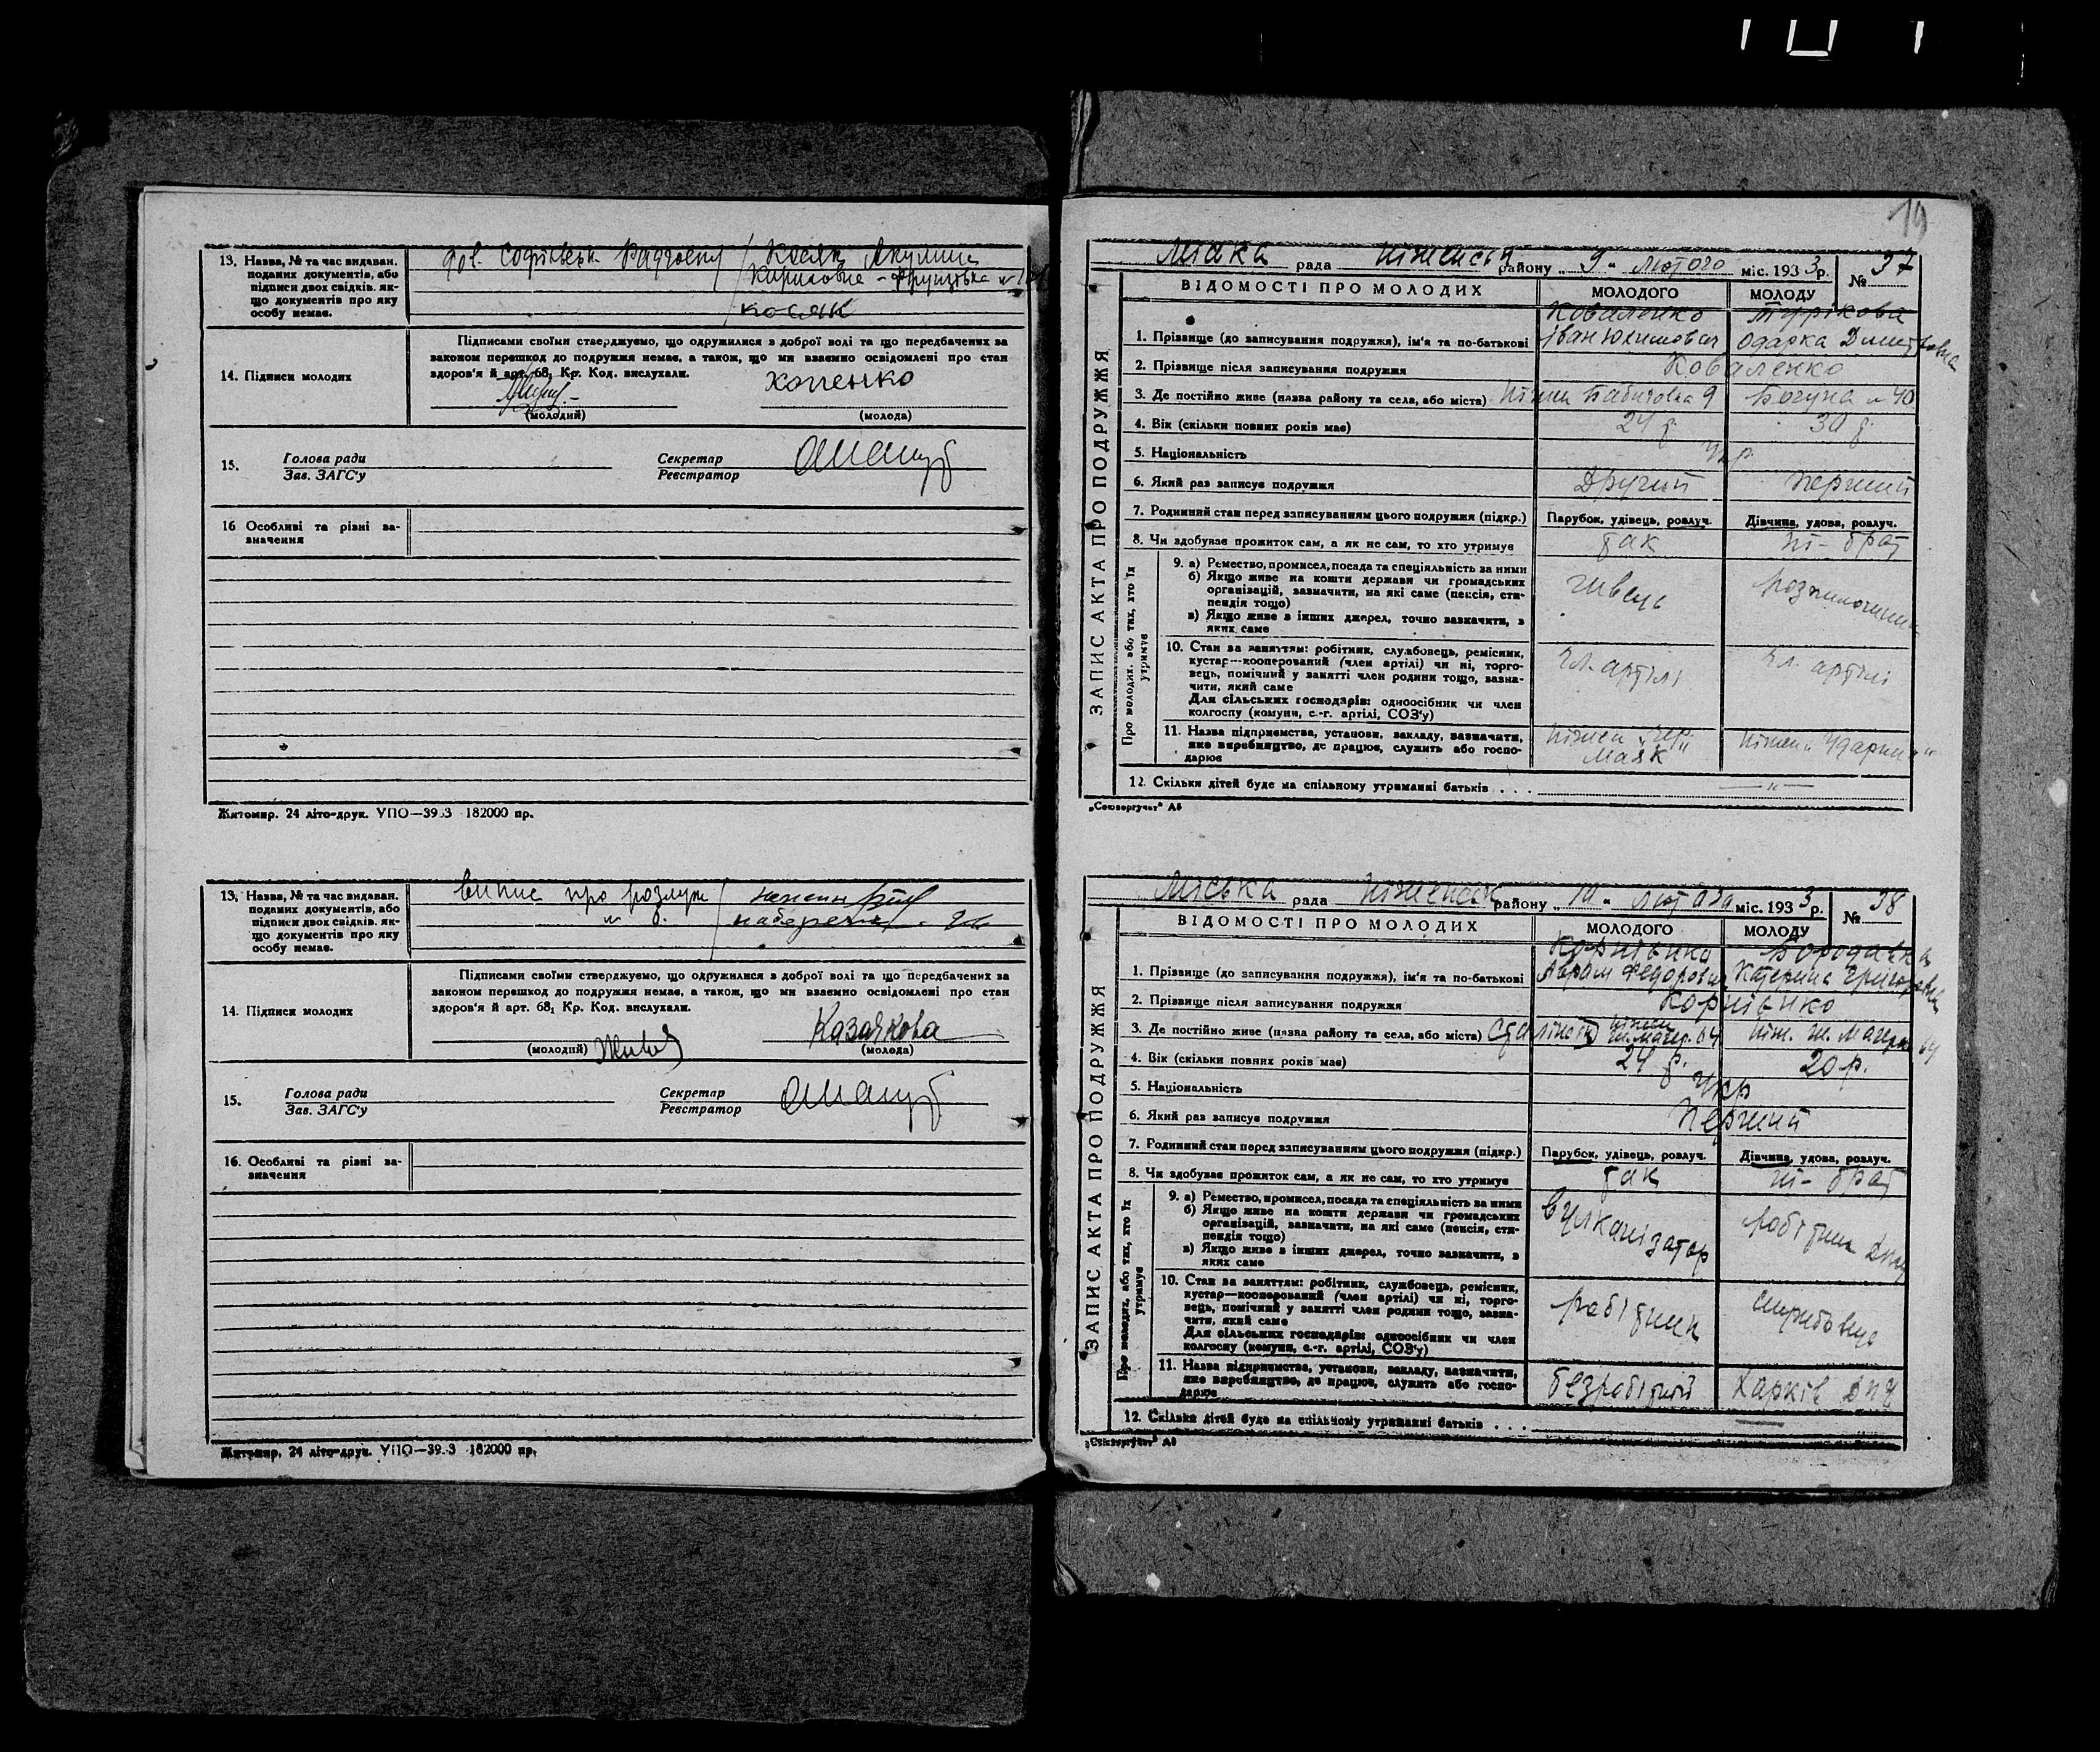 13. Назва, № та час видаван.
поданих документів, або
підписи двох свідків, як-
що документів про яку
особу немає.
дов. Софіївськ. / Косяк Акулина
Кириловна - Фрунзівка
косяк
14. Підписи молодих
Підписами своїми стверджуємо, що одружилися з доброї волі та що передбачених за
законом перешкод до подружжя немає, а також, що ми взаємно освідомлені про стан
здоров'я й арт. 68, Кр. Код. вислухали.
хопенко
(молодий) (молода)
15. Голова ради
Зав. ЗАГС'у
Секретар
Реєстратор
16 Особливі та різні за-
значення
Житомир. 24 літо-друк. УПО—3933 182000 пр.
13. Назва, № та час видаван.
поданих документів, або
підписи двох свідків, як-
що документів про яку
особу немає.
випис про розлуку
14. Підписи молодих
Підписами своїми стверджуємо, що одружилися з доброї волі та що передбачених за
законом перешкод до подружжя немає, а також, що ми взаємно освідомлені про стан
здоров'я й арт. 68, Кр. Код. вислухали.
Казачкова
(молодий) (молода)
15. Голова ради
Зав. ЗАГС'у
Секретар
Реєстратор
16. Особливі та різні за-
значення
Житомир. 24 літо-друк. УПО—3933 182000 пр.
19
Міська рада Ніженськ району „ 9 " лютого міс. 1933 р. № 37
ЗАПИС АКТА ПРО ПОДРУЖЖЯ
ВІДОМОСТІ ПРО МОЛОДИХ МОЛОДОГО МОЛОДУ
1. Прізвище (до записування подружжя), ім'я та по-батькові Коваленко Іван Юхимович Турікова Одарка Дмитровна
2. Прізвище після записування подружжя Коваленко
3. Де постійно живе (назва району та села, або міста) Ніжен Бабичовка 9 Богуна № 40
4. Вік (скільки повних років має) 24 р. 30 р.
5. Національність Укр.
6. Який раз записує подружжя Другий Перший
7. Родинний стан перед записуванням цього подружжя (підкр.) Парубок, удівець, розлуч. Дівчина, удова, розлуч.
8. Чи здобуває прожиток сам, а як не сам, то хто утримує так ні - брат
Про молодих, або тих, хто їх утримує
9. а) Ремество, промисел, посада та спеціяльність за ними
б) Якщо живе на кошти держави чи громадських
організацій, зазначити, на які саме (пенсія, сти-
пендія тощо)
в) Якщо живе з інших джерел, точно зазначити, з
яких саме
швець
10. Стан за заняттям: робітник, службовець, ремісник,
кустар—кооперований (член артілі) чи ні, торго-
вець, помічний у занятті член родини тощо, зазна-
чити, який саме
Для сільських господарів: одноосібник чи член
колгоспу (комуни, с.-г. артілі, СОЗ'у)
чл. артілі чл. артілі
11. Назва підприємства, установи, закладу, зазначити,
яке виробництво, де працює, служить або госпо-
дарює
Ніжен „Чер. Маяк" Ніжен „Ударник"
12. Скільки дітей буде на спільному утриманні батьків . . . —"—
„Союзоргучет" А5
Міська рада Ніженськ району „ 10 " лютого міс. 1933 р. № 38
ЗАПИС АКТА ПРО ПОДРУЖЖЯ
ВІДОМОСТІ ПРО МОЛОДИХ МОЛОДОГО МОЛОДУ
1. Прізвище (до записування подружжя), ім'я та по-батькові Корнієнко Аврам Федорович Бородавка Катерина Григоровна
2. Прізвище після записування подружжя Корнієнко
3. Де постійно живе (назва району та села, або міста) Ніжен Ш. Магер. 64 Ніж. Ш. Магерк 64
4. Вік (скільки повних років має) 24 р. 20 р.
5. Національність Укр
6. Який раз записує подружжя Перший
7. Родинний стан перед записуванням цього подружжя (підкр.) Парубок, удівець, розлуч. Дівчина, удова, розлуч.
8. Чи здобуває прожиток сам, а як не сам, то хто утримує так ні - брат
Про молодих, або тих, хто їх утримує
9. а) Ремество, промисел, посада та спеціяльність за ними
б) Якщо живе на кошти держави чи громадських
організацій, зазначити, на які саме (пенсія, сти-
пендія тощо)
в) Якщо живе з інших джерел, точно зазначити, з
яких саме
вулканізатор робітник ДПУ
10. Стан за заняттям: робітник, службовець, ремісник,
кустар—кооперований (член артілі) чи ні, торго-
вець, помічний у занятті член родини тощо, зазна-
чити, який саме
Для сільських господарів: одноосібник чи член
колгоспу (комуни, с.-г. артілі, СОЗ'у)
робітник службовець
11. Назва підприємства, установи, закладу, зазначити,
яке виробництво, де працює, служить або госпо-
дарює
безробітній Харків ДПУ
12. Скільки дітей буде на спільному утриманні батьків . . . —
„Союзоргучет" А5